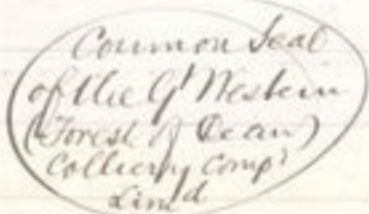 Common Seal
of the Gt Western
(Forest of Dean)
Colliery Compy
Limd